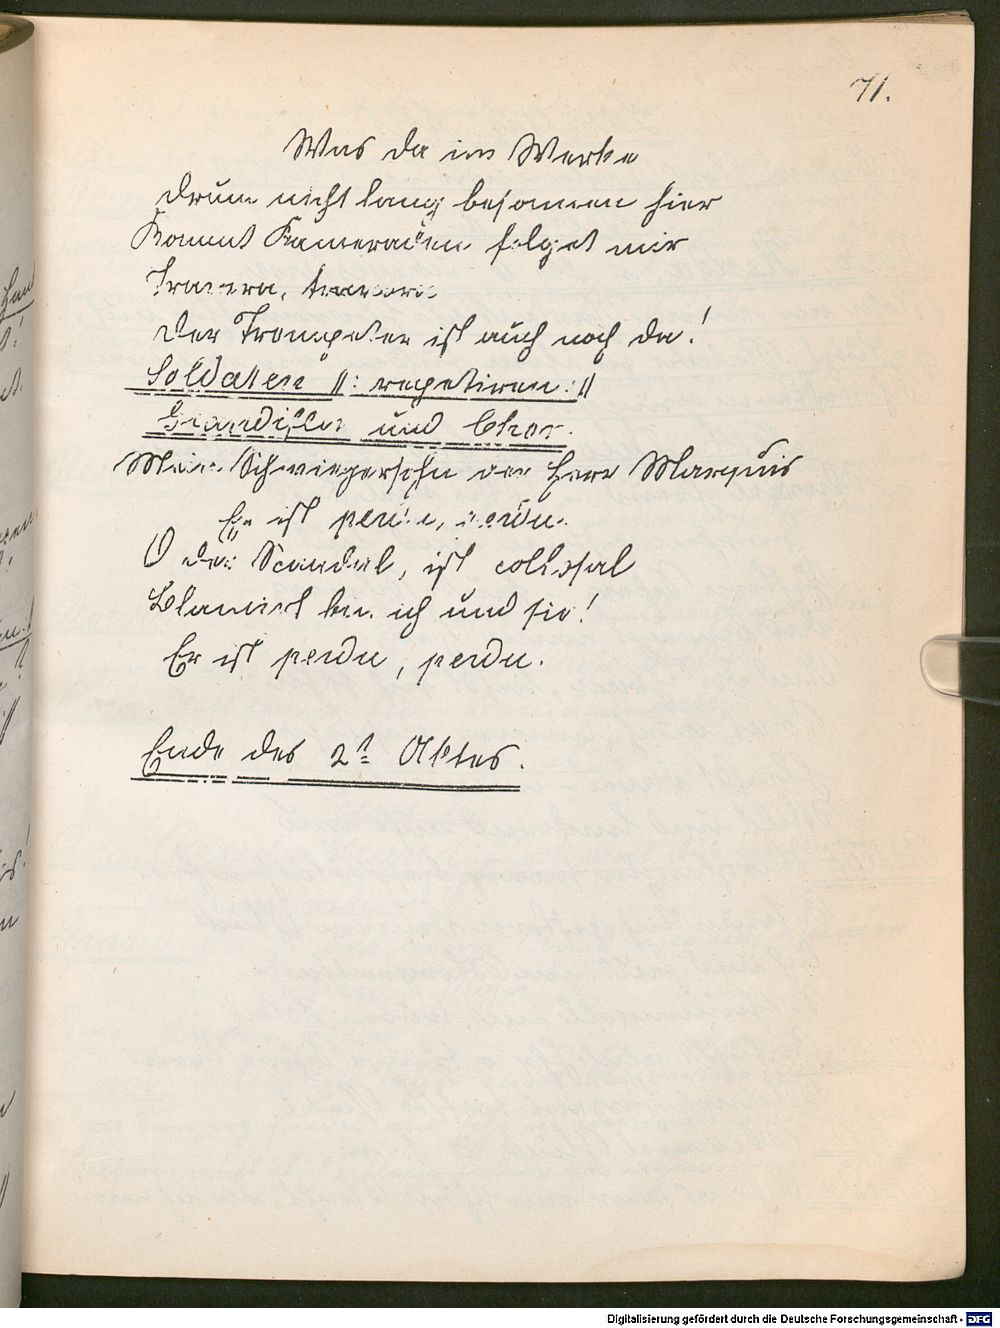 71.
Was da im Werke
Drum nicht lang besonnen hier
Kommt Kameraden folget mir
Trarara, trarara
Der Trompeter ist auch noch da!
Soldaten ||: repetiren :||
und Chor.
Mein Schwiegersohn der Herr Marquis
Er ist perdu, perdu.
O der Scandal, ist collosal
Blamirt bin ich und sie!
Er ist perdu, perdu.
Ende des 2t Aktes.
Digitalisierung gefördert durch die Deutsche Forschungsgemeinschaft - DFG